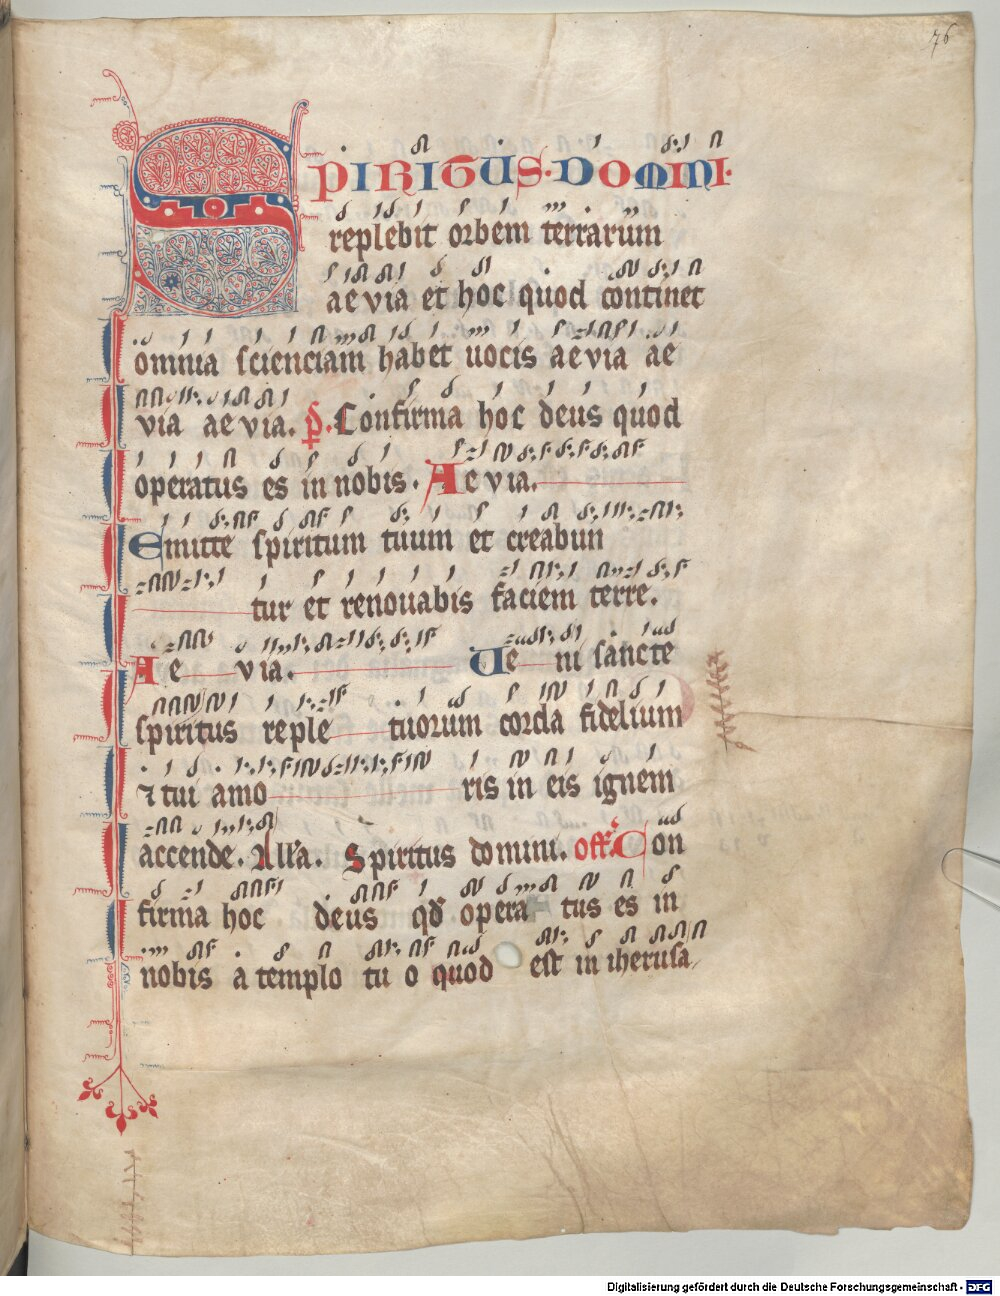 76
SPIRITUS·DOMINI·
replebit orbem terrarum
aevia et hoc quod continet
omnia scienciam habet uocis aevia ae
via aevia. p̃. Confirma hoc deus quod
operatus es in nobis. Aevia.
Emitte spiritum tuum et creabun
tur et renouabis faciem terre.
Ae via. Ue ni sancte
spiritus reple tuorum corda fidelium
⁊ tui amo ris in eis ignem
accende. All'a. Spiritus domini. off. Con
firma hoc deus qd̃ opera tus es in
nobis a templo tu o quod est in iherusa
Digitalisierung gefördert durch die Deutsche Forschungsgemeinschaft - DFG